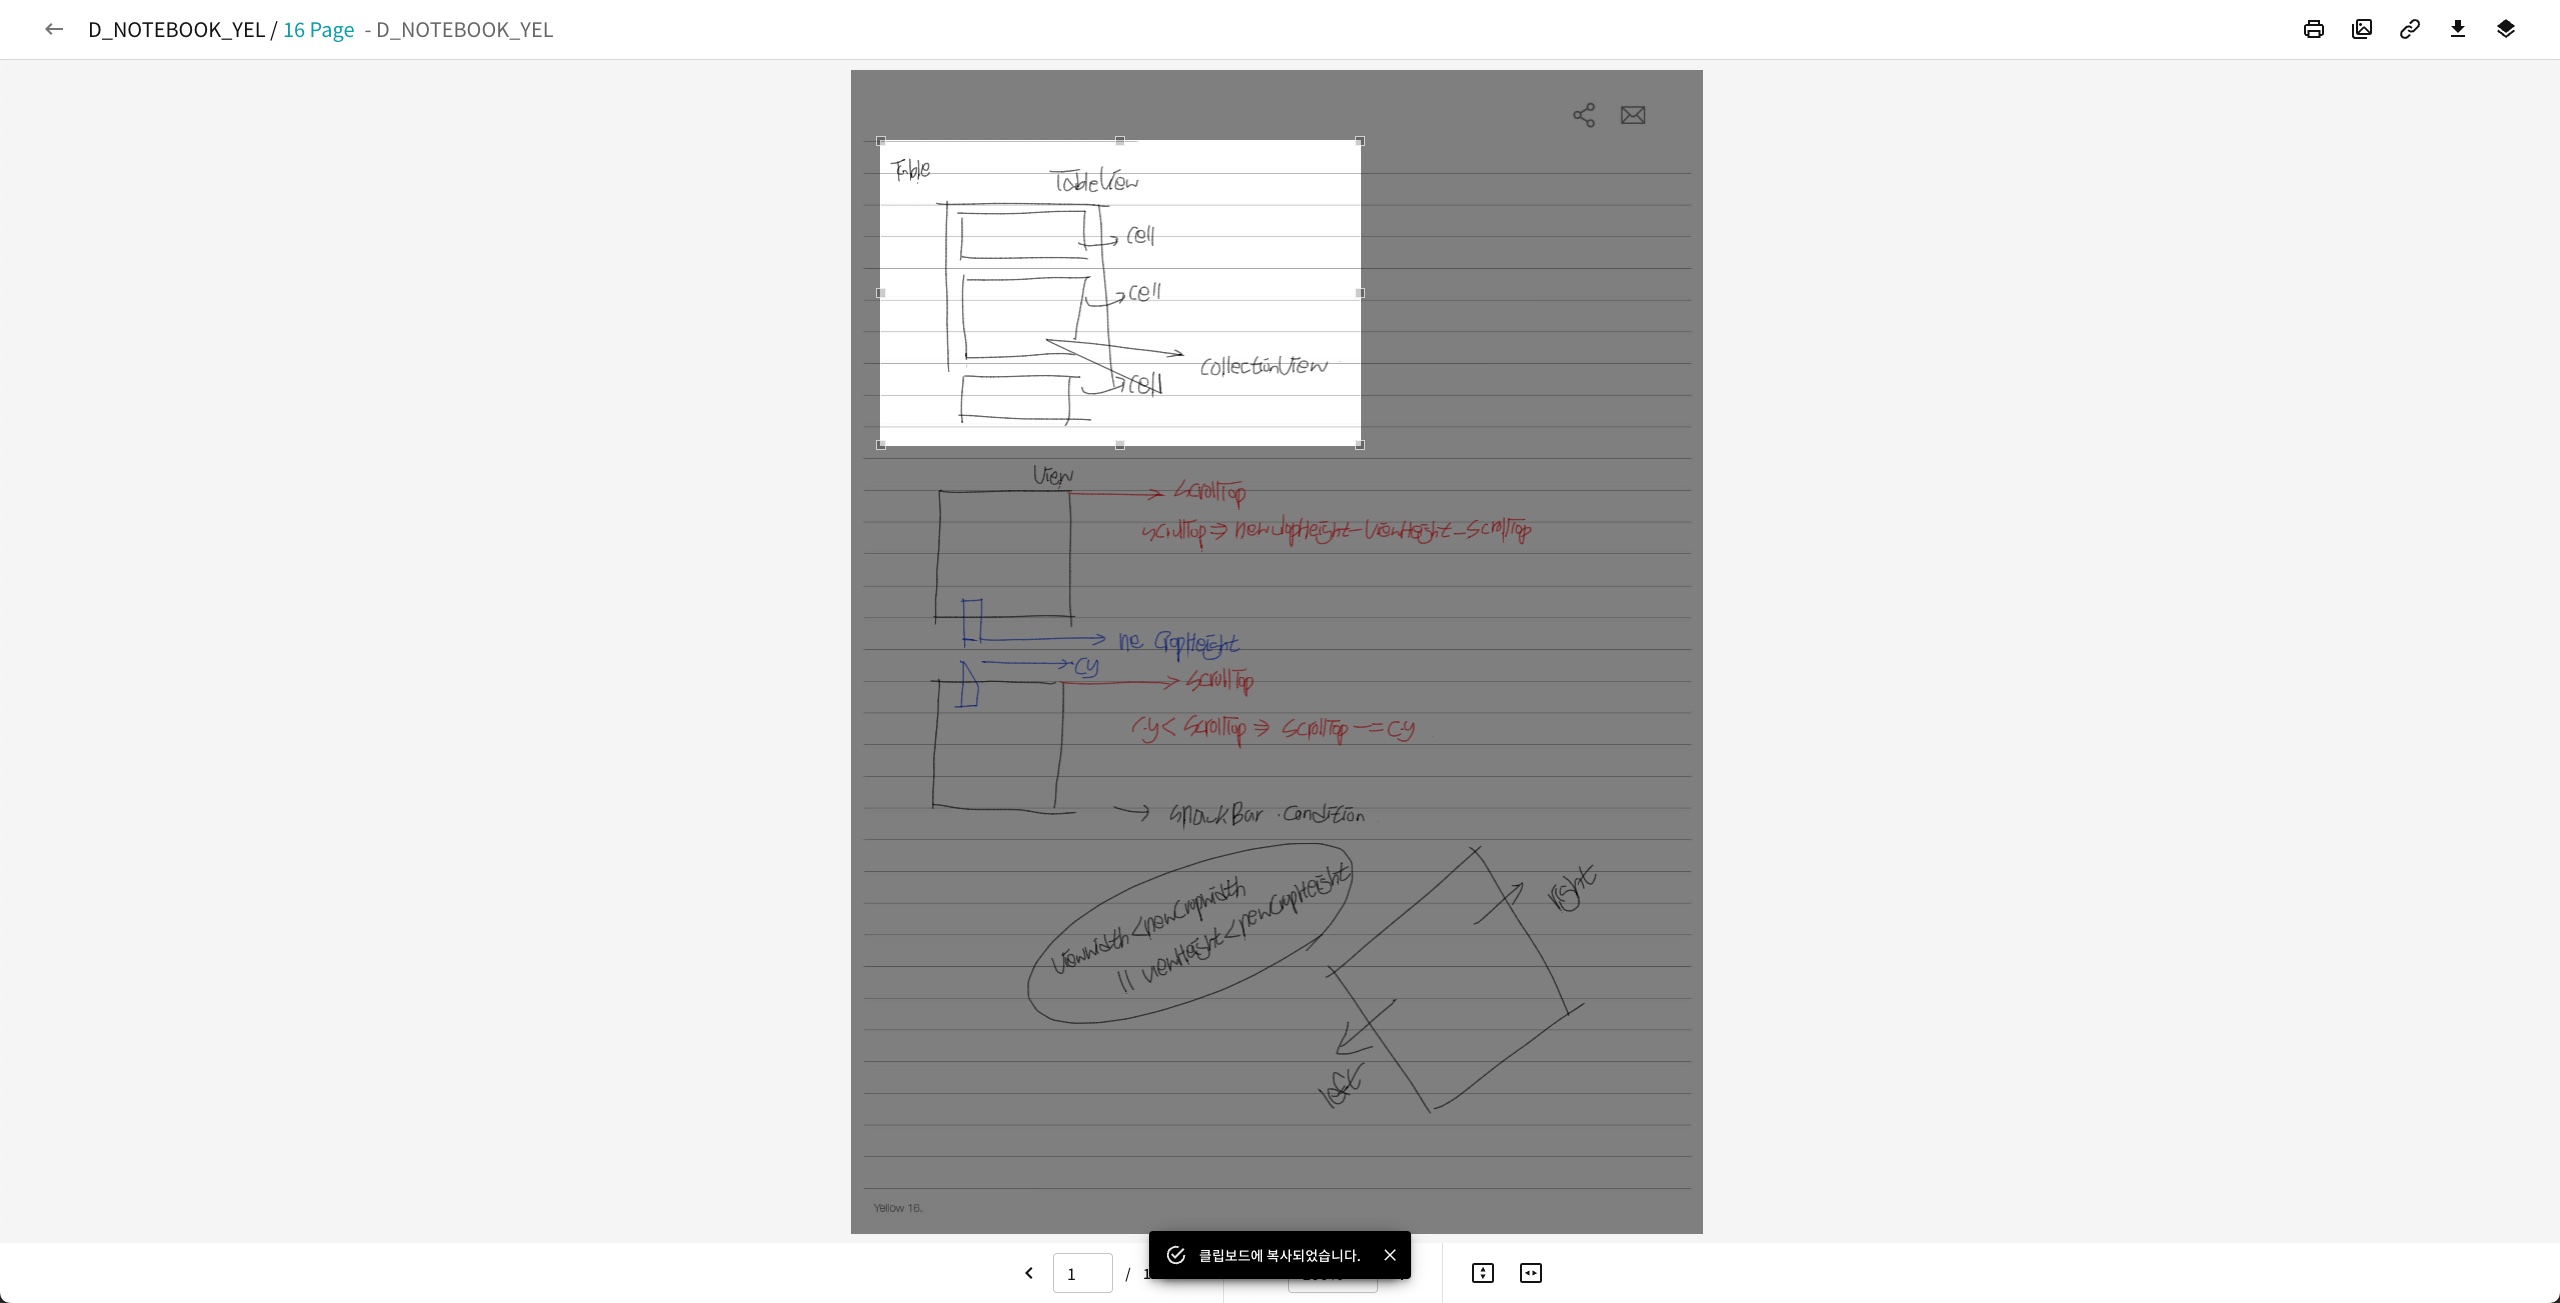 D_NOTEBOOK_YEL / 16 Page - D_NOTEBOOK_YEL
Table
TableView
cell
cell
CollectionView
cell
View
ScrollTop
scrollTop ⇒ newCropHeight - ViewHeight - ScrollTop
ne CropHeight
cy
ScrollTop
Cy < ScrollTop ⇒ ScrollTop -= Cy
→ snackBar . Condition
viewWidth < newCropWidth
|| viewHeight < newCropHeight
right
left
Yellow 16.
클립보드에 복사되었습니다.
1 / 1